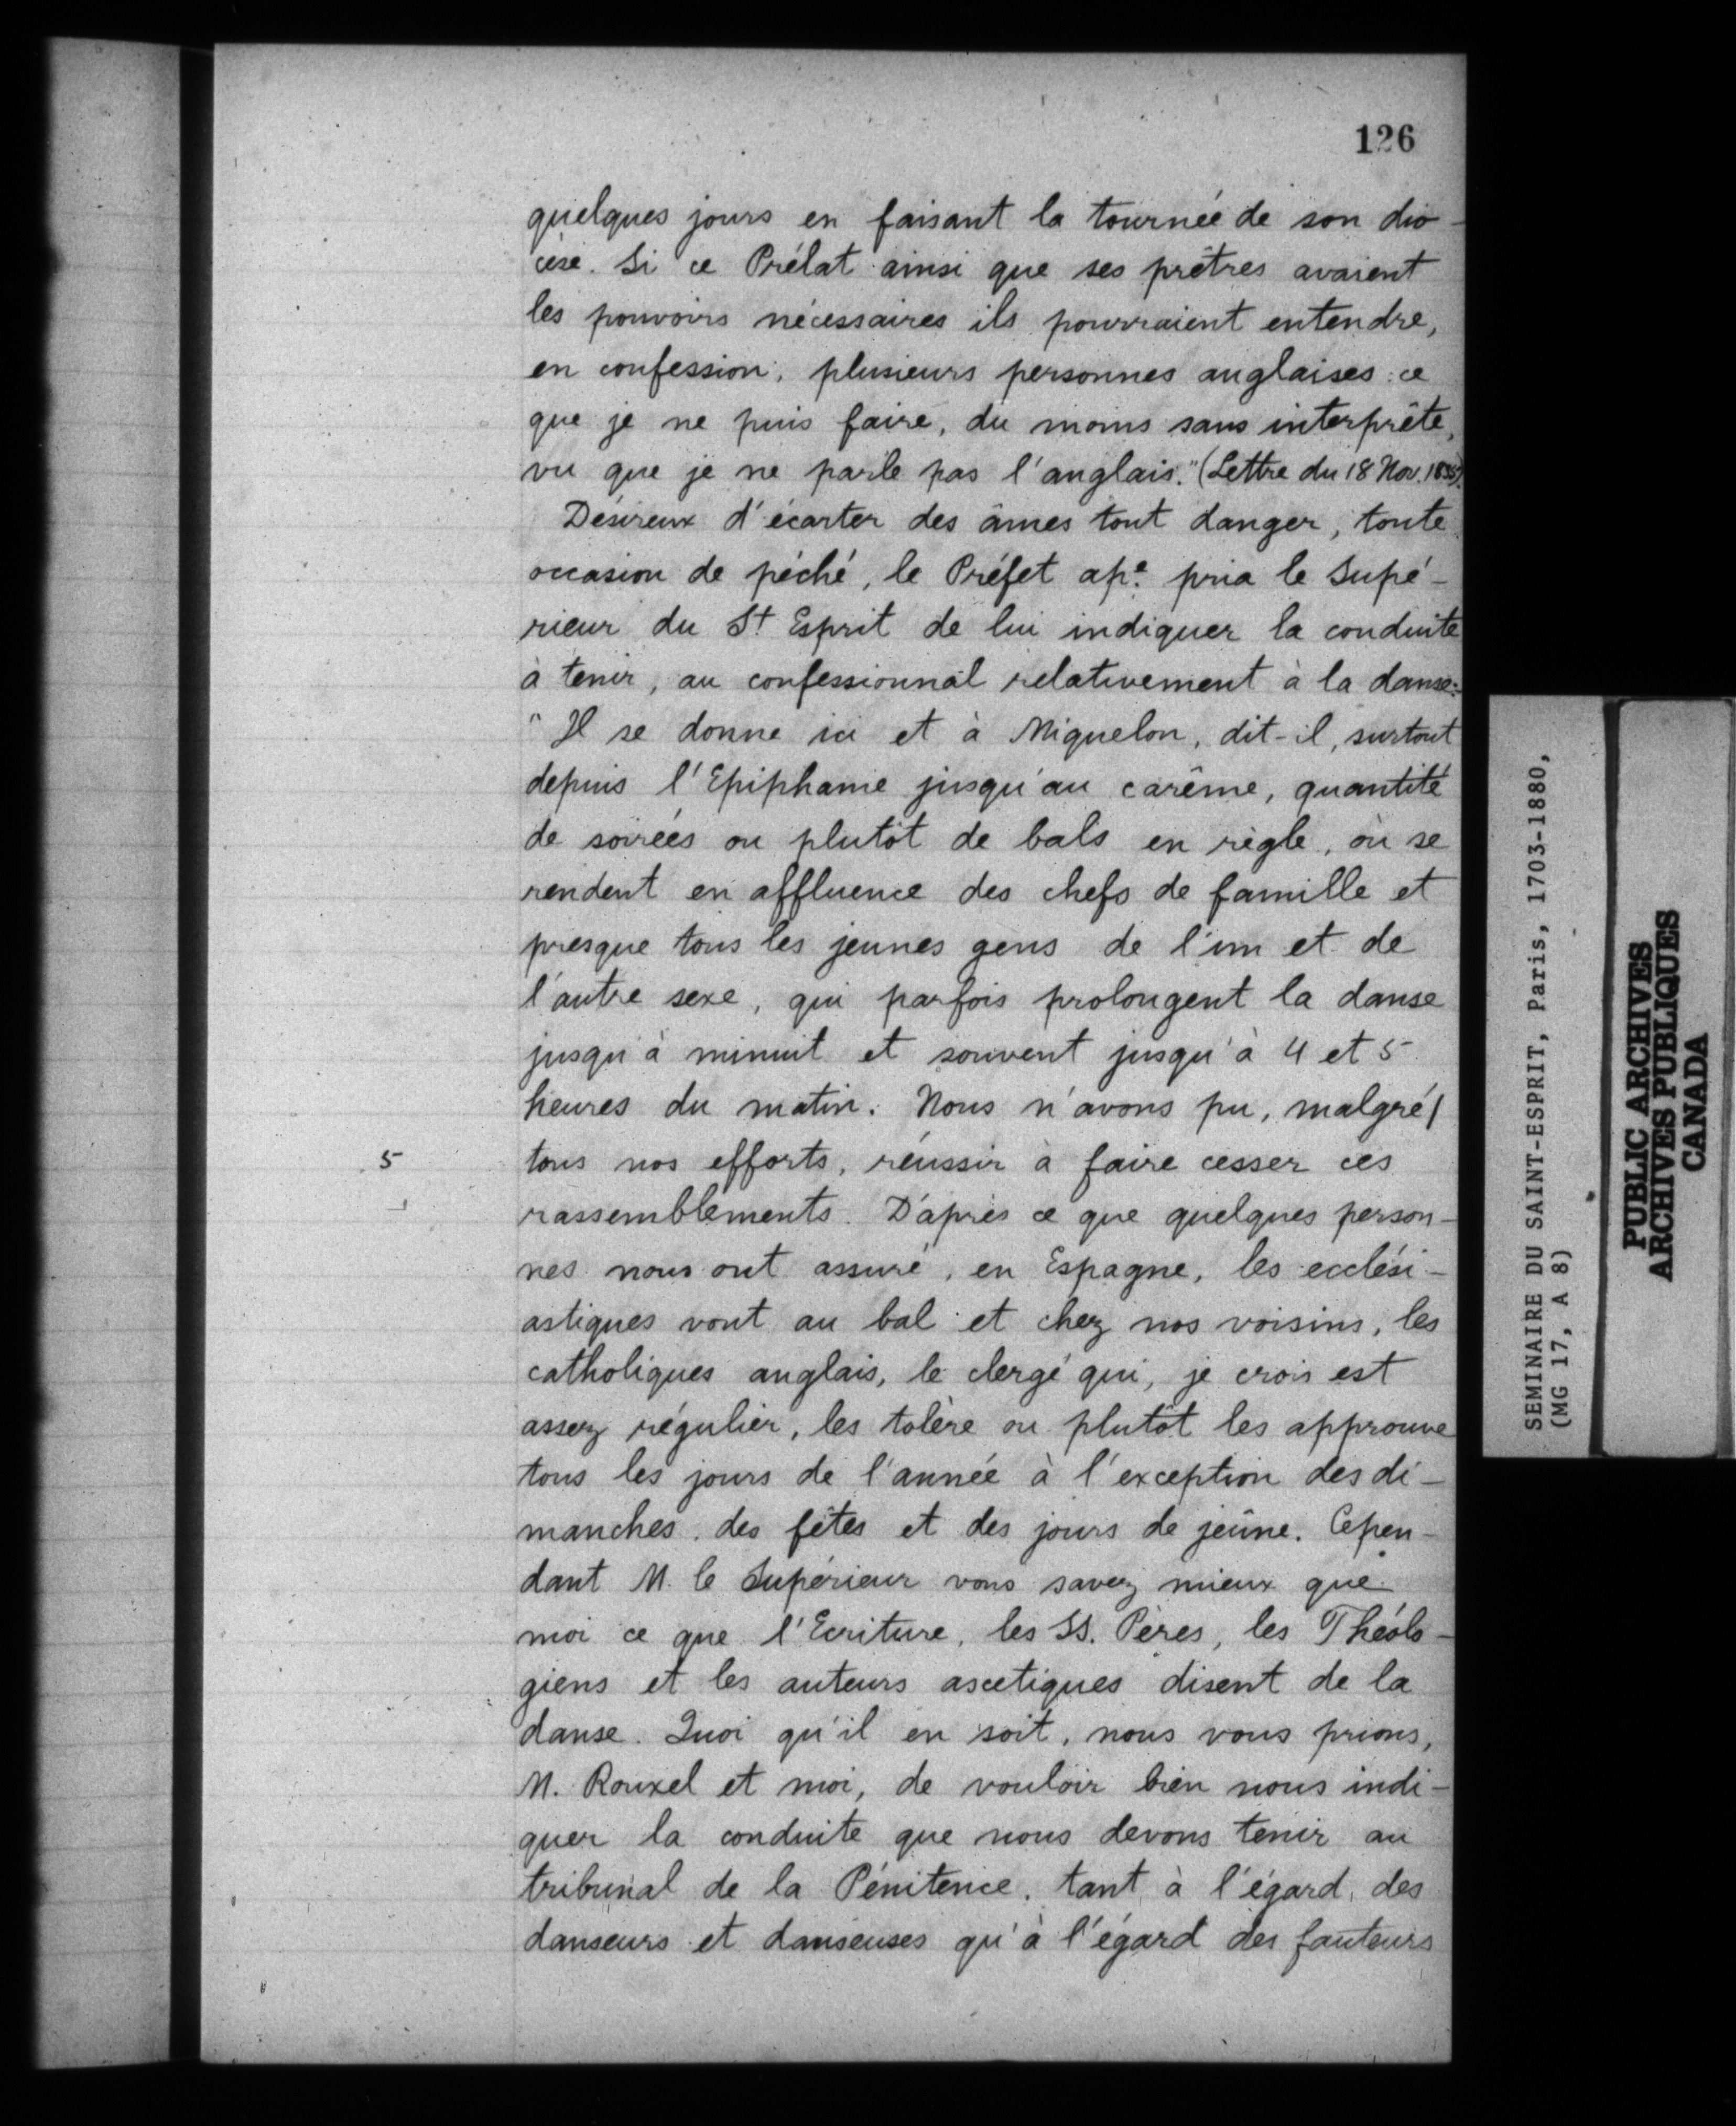 126
quelques jours en faisant la tournée de son dio-
cèse. Si ce Prélat ainsi que ses prêtres avaient
les pouvoirs nécessaires ils pourraient entendre,
en confession, plusieurs personnes anglaises: ce
que je ne puis faire, du moins sans interprête,
vu que je ne parle pas l'anglais." (Lettre du 18 Nov.
Désireux d'écarter des âmes tout danger, toute
occasion de péché, le Préfet ap.e pria le Supé-
rieur du St Esprit de lui indiquer la conduite
à tenir, au confessionnal relativement à la danse:
"Il se donne ici et à Miquelon, dit-il, surtout
depuis l'Epiphanie jusqu'au carême, quantité
de soirées ou plutôt de bals en règle, où se
rendent en affluence des chefs de famille et
presque tous les jeunes gens de l'un et de
l'autre sexe, qui parfois prolongent la danse
jusqu'à minuit et souvent jusqu'à 4 et 5
heures du matin. Nous n'avons pu, malgré
5 tous nos efforts, réussir à faire cesser ces
rassemblements. D'après ce que quelques person-
nes nous ont assuré, en Espagne, les ecclési-
astiques vont au bal et chez nos voisins, les
catholiques anglais, le clergé qui, je crois est
assez régulier, les tolère ou plutôt les approuve
tous les jours de l'année à l'exception des di-
manches, des fêtes et des jours de jeûne. Cepen-
dant M. le Supérieur vous savez mieux que
moi ce que l'Ecriture, les SS. Pères, les Théolo-
giens et les auteurs ascetiques disent de la
danse. Quoi qu'il en soit, nous vous prions,
M. Rouxel et moi, de vouloir bien nous indi-
quer la conduite que nous devons tenir au
tribunal de la Pénitence, tant à l'égard des
danseurs et danseuses qu'à l'égard des fauteurs
SEMINAIRE DU SAINT-ESPRIT, Paris, 1703-1880,
(MG 17, A 8)
PUBLIC ARCHIVES
ARCHIVES PUBLIQUES
CANADA